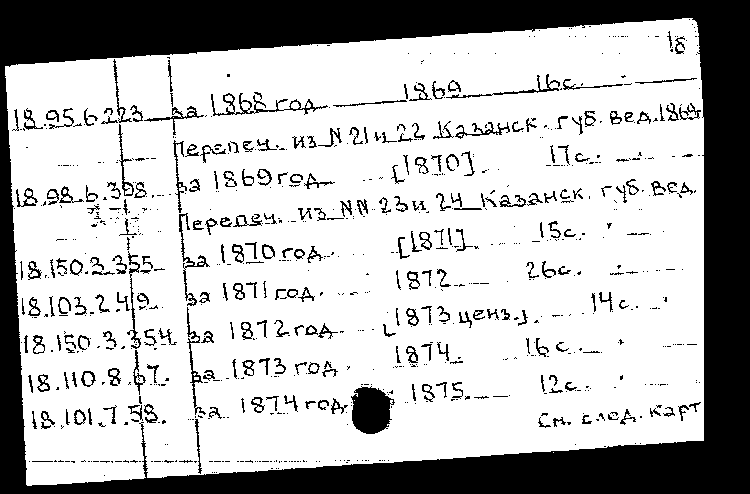 18
18.95.6.223 за 1868 год 1869 16с.
Перепеч. из N 21 и 22 Казанск. губ. вед. 1869
18.98.6.398. за 1869 год [1870] 17с.
Перепеч. из NN 23 и 24 Казанск. губ. вед.
18.150.3.355 за 1870 год. [1871] 15с.
18.103.2.49 за 1871 год. 1872 26с.
18.150.3.354 за 1872 год [1873 ценз.] 14с.
18.110.8.67. за 1873 год. 1874. 16с.
18.101.7.58. за 1874 год. 1875. 12с.
См. след. карт